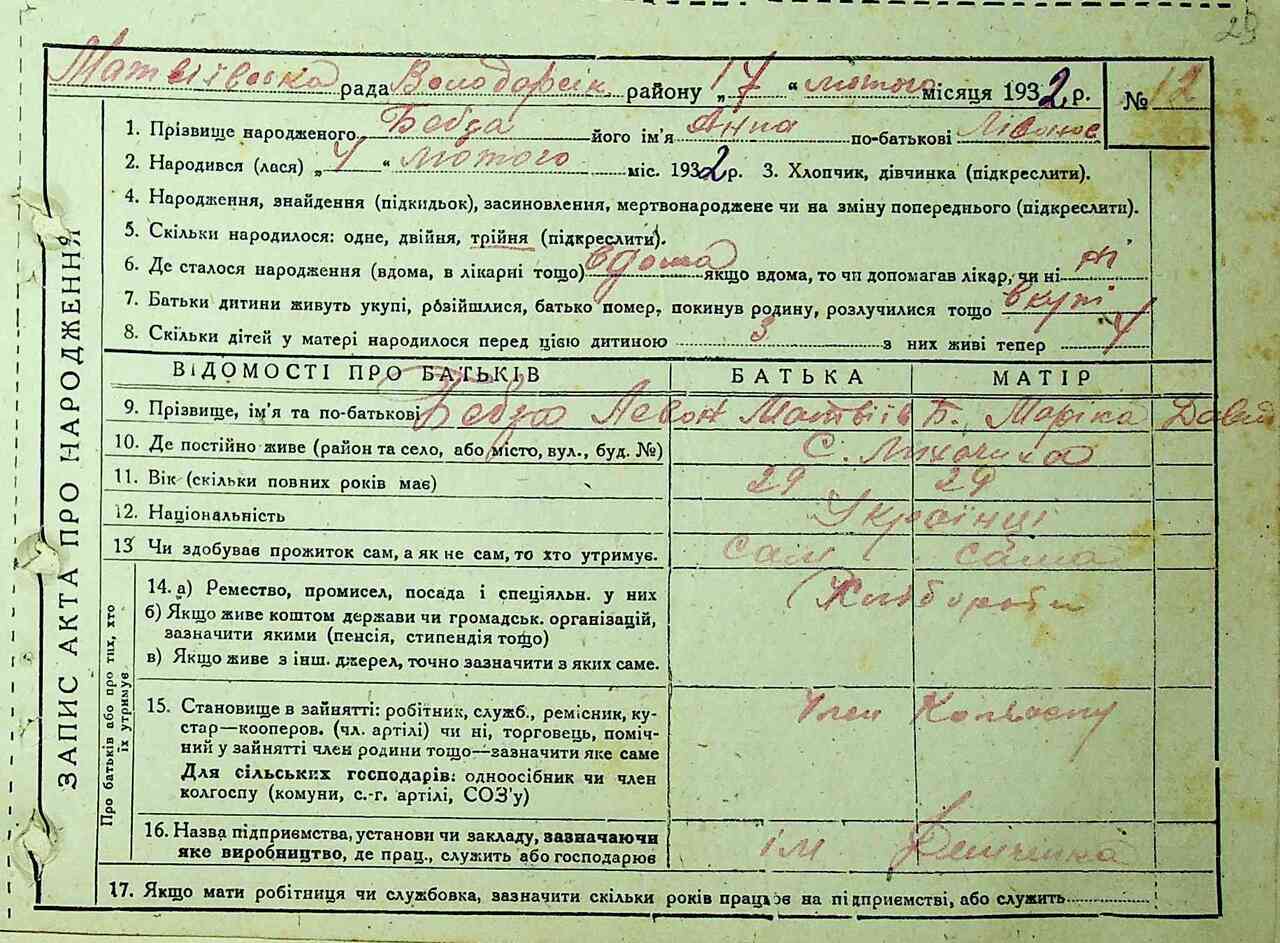 29
Матвіївська рада Володарськ. району „17“ лютого місяця 1932 р. № 12
1. Прізвище народженого Бебза його ім'я Анна по-батькові
2. Народився (лася) „4“ лютого міс. 1932 р. 3. Хлопчик, дівчинка (підкреслити).
4. Народження, знайдення (підкидьок), засиновлення, мертвонароджене чи на зміну попереднього (підкреслити).
5. Скільки народилося: одне, двійня, трійня (підкреслити).
6. Де сталося народження (вдома, в лікарні тощо) вдома якщо вдома, то чи допомагав лікар, чи ні ні
7. Батьки дитини живуть укупі, розійшлися, батько помер, покинув родину, розлучилися тощо вкупі
8. Скільки дітей у матері народилося перед цією дитиною 3 з них живі тепер 4
ВІДОМОСТІ ПРО БАТЬКІВ БАТЬКА МАТІР
9. Прізвище, ім'я та по-батькові Бебза Левон Матвіїв Б. Марійка Давид
10. Де постійно живе (район та село, або місто, вул., буд. №) С.
11. Вік (скільки повних років має) 29 29
12. Національність Українці
13 Чи здобував прожиток сам, а як не сам, то хто утримує. сам сама
14. а) Ремество, промисел, посада і спеціяльн. у них Хлібороби
б) Якщо живе коштом держави чи громадськ. організацій,
зазначити якими (пенсія, стипендія тощо)
в) Якщо живе з інш. джерел, точно зазначити з яких саме.
15. Становище в зайнятті: робітник, служб., ремісник, ку-
стар—кооперов. (чл. артілі) чи ні, торговець, поміч-
ний у зайнятті член родини тощо—зазначити яке саме
Для сільських господарів: одноосібник чи член
колгоспу (комуни, с.-г. артілі, СОЗ'у)
Член Колгоспу
16. Назва підприємства, установи чи закладу, зазначаючи
яке виробництво, де прац., служить або господарює ім
17. Якщо мати робітниця чи службовка, зазначити скільки років працює на підприємстві, або служить
ЗАПИС АКТА ПРО НАРОДЖЕННЯ
Про батьків або про тих, хто
їх утримує